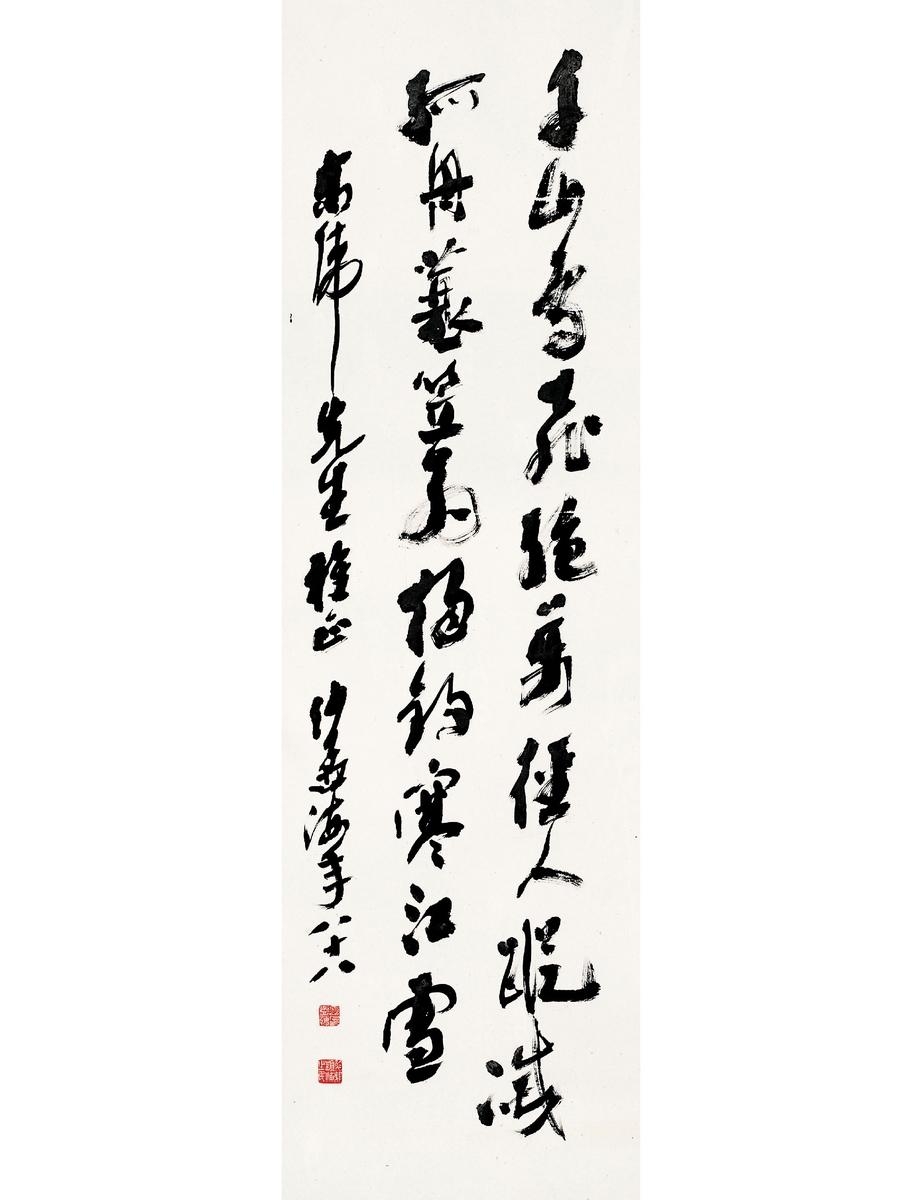 千山鳥飛絕萬徑人蹤滅
孤舟蓑笠翁獨釣寒江雪
高偉先生雅正 沙孟海年八十八